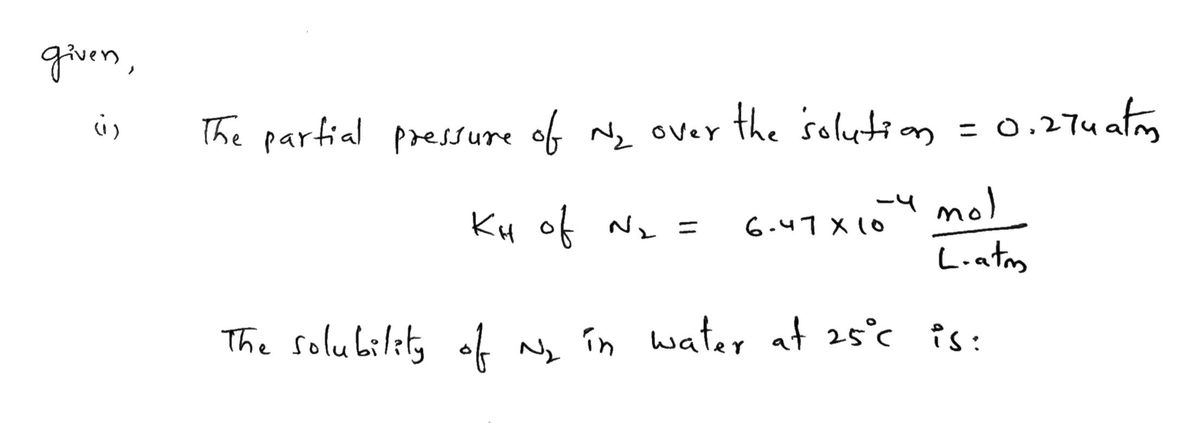 given,
(i) The partial pressure of N₂ over the solution = 0.274 atm
K_H of N₂ = 6.47 × 10⁻⁴ mol / L.atm
The solubility of N₂ in water at 25°C is: